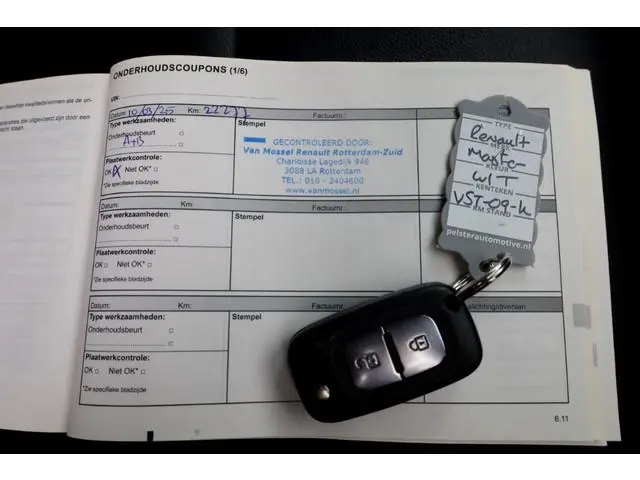 ONDERHOUDSCOUPONS (1/6)
VIN:
Datum: 10/03/25 Km: 22277 Factuurnr.:
Type werkzaamheden: Stempel
Onderhoudsbeurt
A+B
Plaatwerkcontrole:
OK X Niet OK*
*Zie specifieke bladzijde
GECONTROLEERD DOOR:
Van Mossel Renault Rotterdam-Zuid
Charloisse Lagedijk 946
3088 LA Rotterdam
TEL.: 010 - 2404600
www.vanmossel.nl
TYPE
Renault
Master
KLEUR
WIT
KENTEKEN
VST-09-K
KM STAND
pelsterautomotive.nl
Datum: Km: Factuurnr.:
Type werkzaamheden: Stempel
Onderhoudsbeurt
Plaatwerkcontrole:
OK Niet OK*
*Zie specifieke bladzijde
Datum: Km: Factuurnr.:
Type werkzaamheden: Stempel
Onderhoudsbeurt
Plaatwerkcontrole:
OK Niet OK*
*Zie specifieke bladzijde
6.11